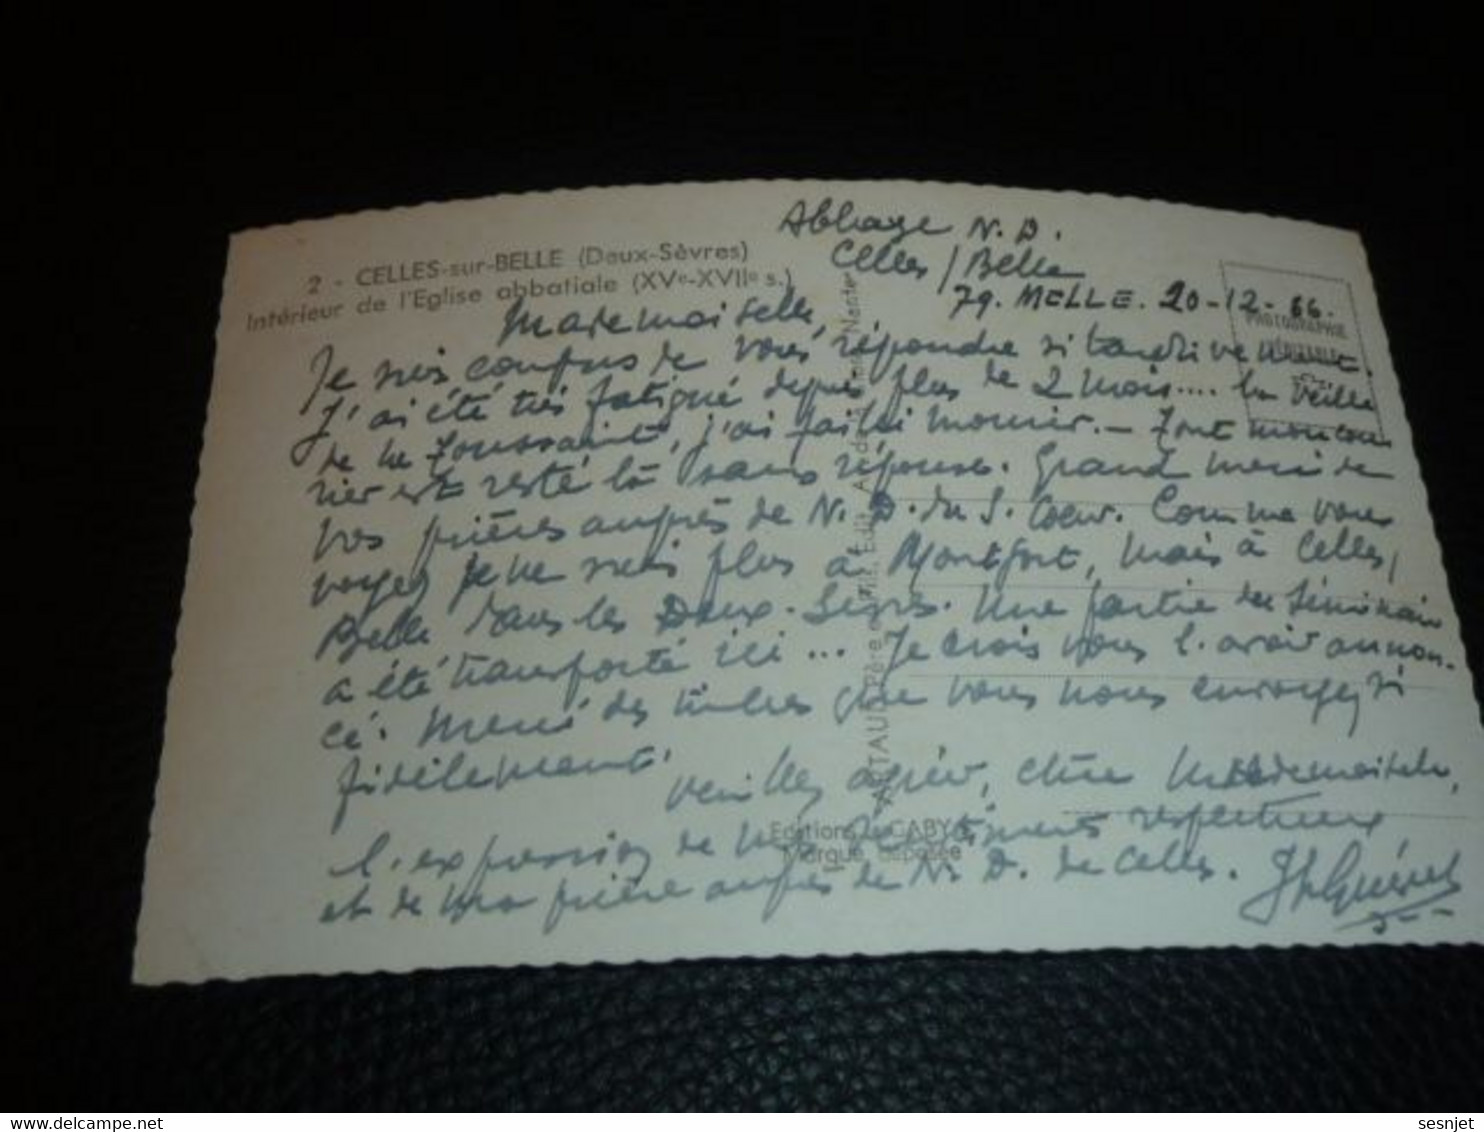 Abbaye N. D.
Celles / Belle
79. MELLE. 20-12-66.
2 - CELLES-sur-BELLE (Deux-Sèvres)
Intérieur de l'Eglise abbatiale (XVe-XVIIe s.)
PHOTOGRAPHIE
VÉRITABLE
Mademoiselle,
Je suis confus de vous répondre si tardivement.
J'ai été très fatigué depuis plus de 2 mois.... la veille
de la Toussaint, j'ai failli mourir. - Tout mon cour
rier est resté là sans réponse. Grand merci de
vos prières auprès de N. D. du S. Coeur. Comme vous
voyez je ne suis plus à Montfort, mais à Celles/
Belle dans les Deux-Sèvres. Une partie du Séminaire
a été transporté ici ... Je crois vous l'avoir annon-
cé. Merci des timbres que vous nous envoyez si
fidèlement.
Veuillez agréer, chère Mademoiselle,
l'expression de mes sentiments respectueux
et de ma prière auprès de N. D. de Celles.
ARTAUD Père Edit. Nantes
Editions "GABY"
Marque déposée
sesnjet